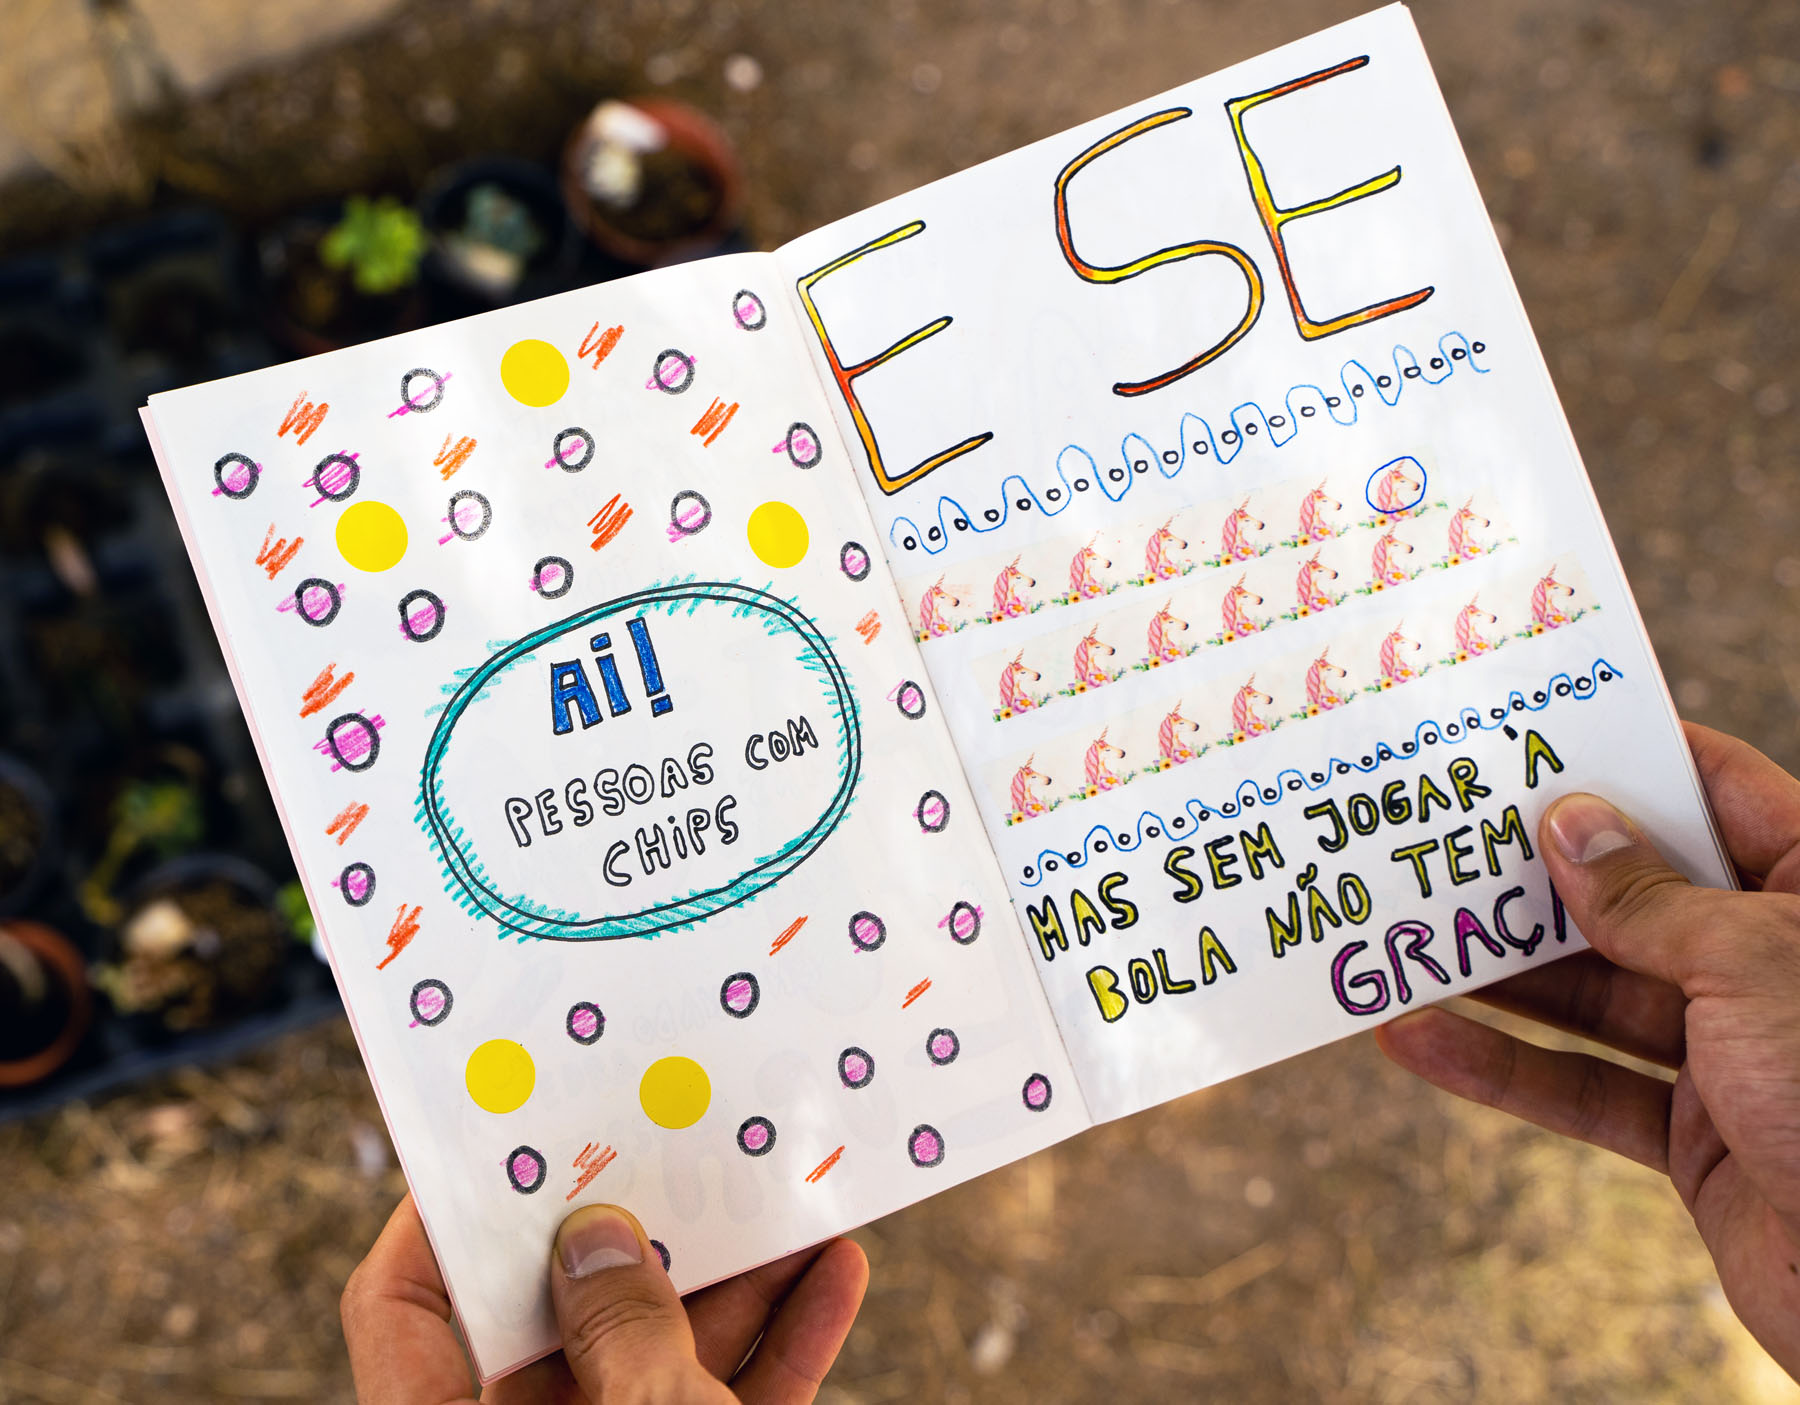 Ai!
PESSOAS COM
CHiPS
E SE
MAS SEM JOGAR À
BOLA NÃO TEM